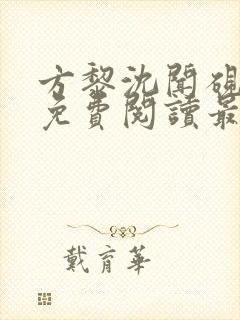 方黎沈聞硯
免費閱讀最
戴育華